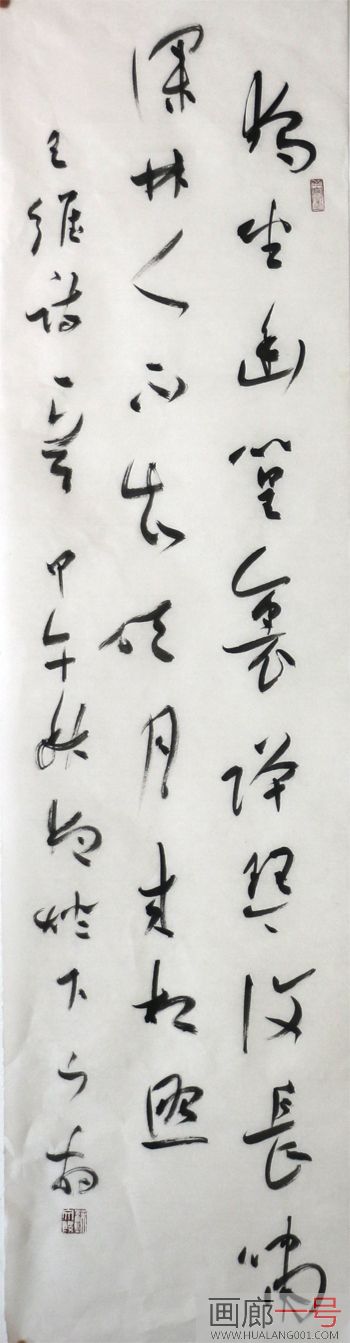 獨坐幽篁裏彈琴復長嘯
深林人不知明月来相照
王維詩一首 甲午秋
燈下
画廊一号
WWW.HUALANG001.COM